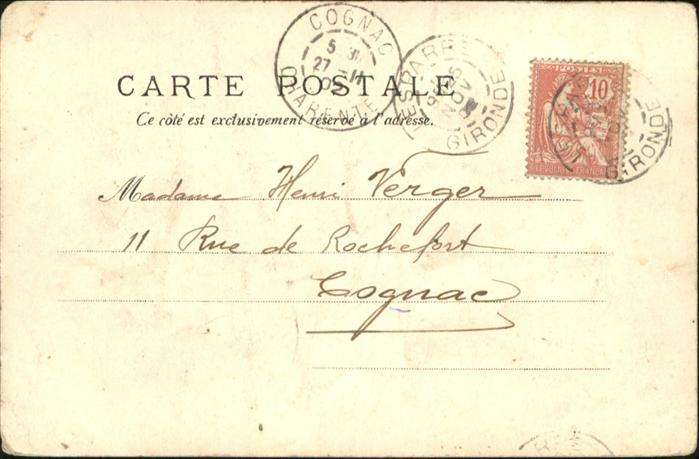 CARTE POSTALE
Ce côté est exclusivement réservé à l'adresse.
COGNAC
27
CHARENTE
LESPARRE
GIRONDE
POSTES
10
GIRONDE
Madame Henri Verger
11 Rue de Rochefort
Cognac